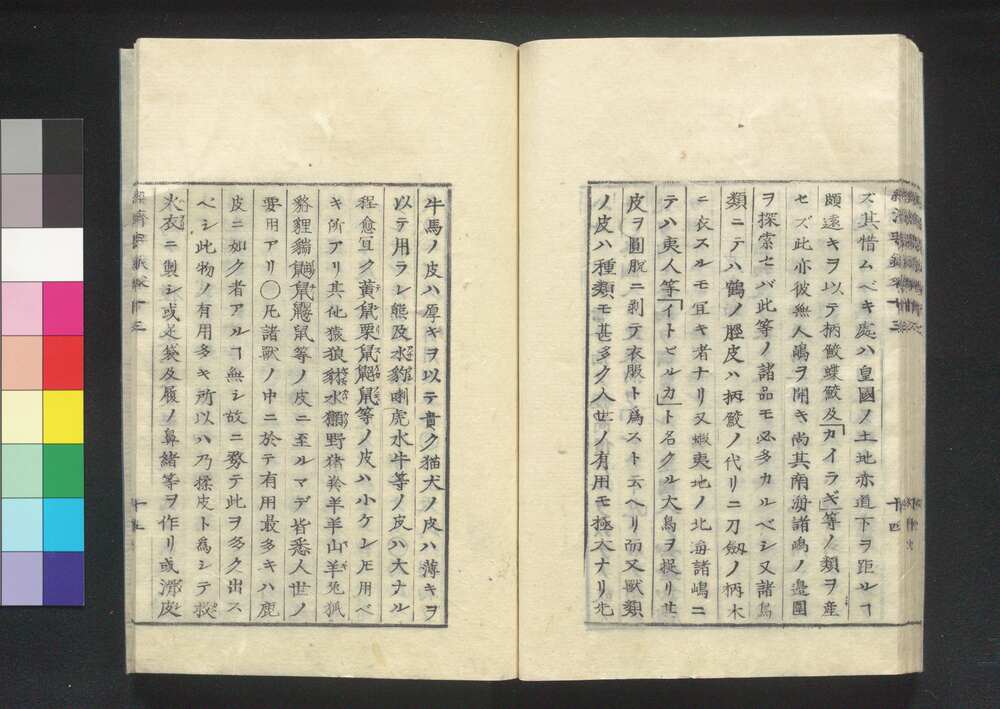 ズ其惜ムベキ處ハ皇國ノ土地赤道下ヲ距ルヿ
頗遠キヲ以テ柄鮫蝶鮫及「カイラギ」等ノ類ヲ産
セズ此亦彼無人嶋ヲ開キ尚其南海諸嶋ノ邊圍
ヲ探索セバ此等ノ諸品モ必多カルベシ又諸鳥
類ニテハ鶴ノ脛皮ハ柄鮫ノ代リニ刀劔ノ柄木
ニ衣スルモ宜キ者ナリ又蝦夷地ノ北海諸嶋ニ
テハ夷人等「イトピルカ」ト名クル大鳥ヲ捉リ其
皮ヲ圓脱ニ剥テ衣服ト爲スト云ヘリ而又獸類
ノ皮ハ種類モ甚多ク人世ノ有用モ極大ナリ先
十四
牛馬ノ皮ハ厚キヲ以テ貴ク猫犬ノ皮ハ薄キヲ
以テ用ラレ熊及水豹喇虎水牛等ノ皮ハ大ナル
程愈宜ク黄鼠栗鼠鼯鼠等ノ皮ハ小ケレ𪜈用ベ
キ所アリ其他猿狼豺水獺野猪羚羊羊山羊兎狐
貉貍貒鼴鼠等ノ皮ニ至ルマデ皆悉人世ノ
要用アリ〇凡諸獸ノ中ニ於テ有用最多キハ鹿
皮ニ如ク者アルヿ無シ故ニ務テ此ヲ多ク出ス
ベシ此物ノ有用多キ所以ハ乃揉皮ト為シテ
火衣ニ製シ或足袋及履ノ鼻緒等ヲ作リ或滑皮